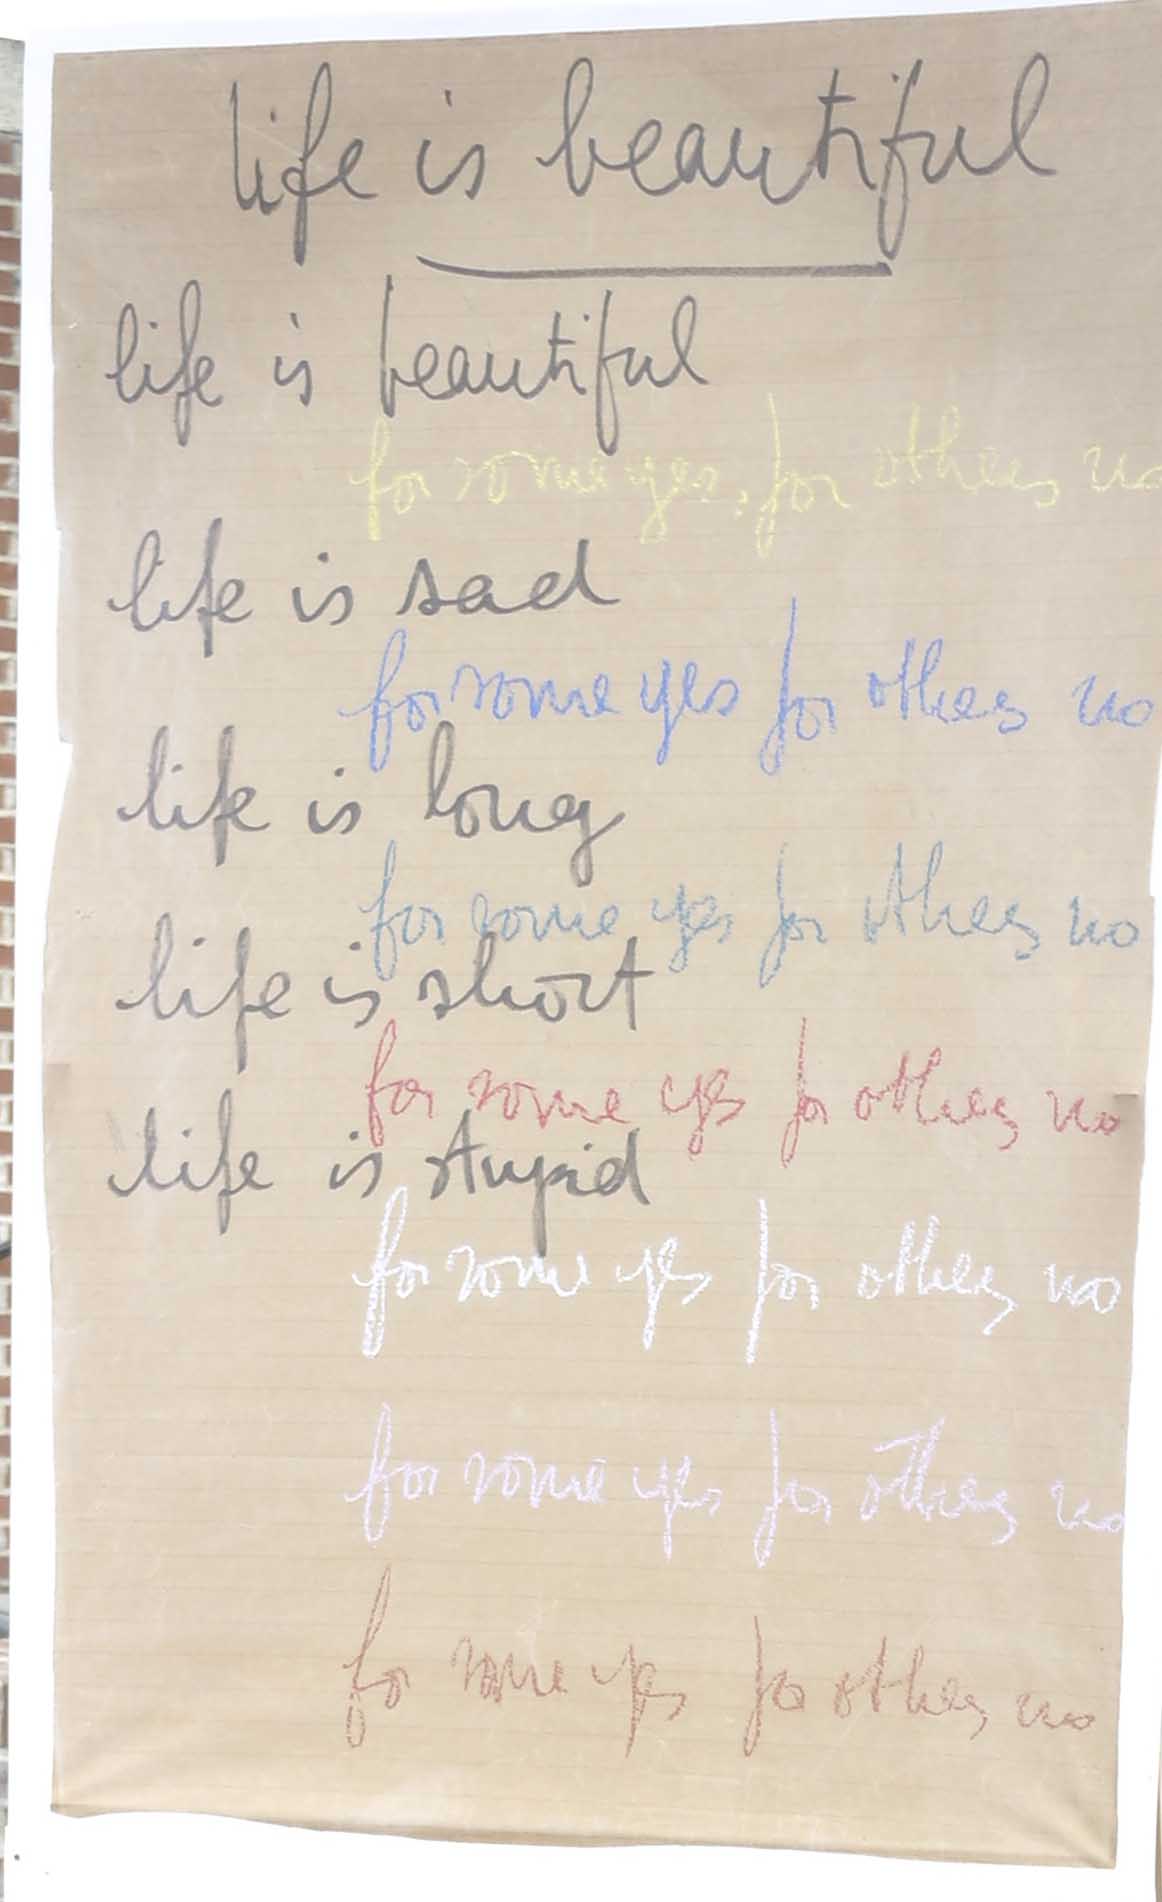 life is beautiful
life is beautiful
for some yes, for others no
life is sad
for some yes for others no
life is long
for some yes for others no
life is short
for some yes for others no
life is stupid
for some yes for others no
for some yes for others no
for some yes for others no